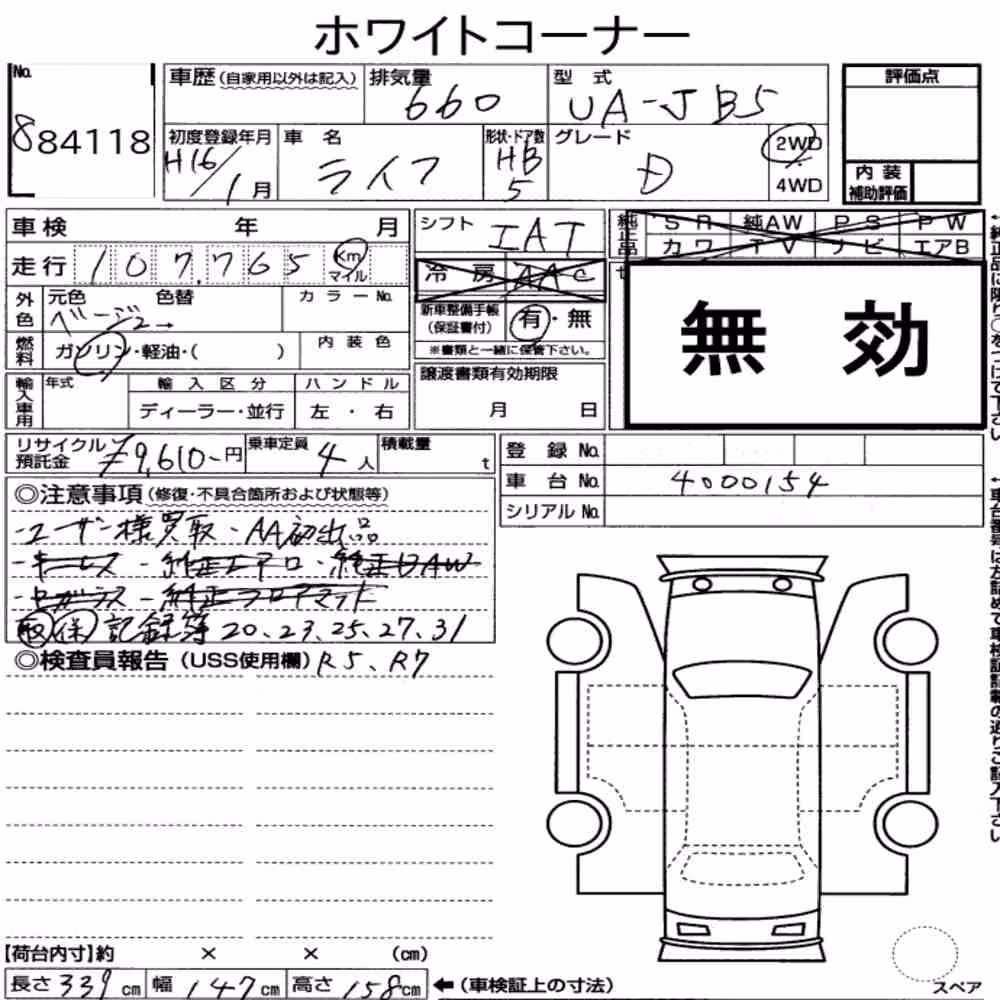 ホワイトコーナー
No. 884118
車歴(自家用以外は記入) 排気量 660 型式 UA-JB5 評価点
初度登録年月 H16/1月 車名 ライフ 形状・ドア数 HB 5 グレード D 2WD 4WD 内装補助評価
車検 年 月 シフト IAT 純正品 SR 純AW PS PW
カワ TV ナビ エアB
走行 107,765 Km マイル 冷房 AAC
外色 元色 ベージュ 色替 カラーNo. 新車整備手帳(保証書付) 有・無
※書類と一緒に保管下さい。
無効
燃料 ガソリン・軽油・( ) 内装色
譲渡書類有効期限
月 日
輸入車用 年式 輸入区分 ハンドル
ディーラー・並行 左・右
リサイクル預託金 ¥9,610-円 乗車定員 4人 積載量 t
登録No.
車台No. 4000154
シリアルNo.
◎注意事項(修復・不具合箇所および状態等)
・ユーザー様買取・AA初出品
・キーレス・純正エアロ・純正AW
・純正フロアマット
取 保 記録簿 20.23.25.27.31
◎検査員報告(USS使用欄) R5、R7
【荷台内寸】約 × × (cm)
長さ 339 cm 幅 147 cm 高さ 158 cm ←(車検証上の寸法)
スペア